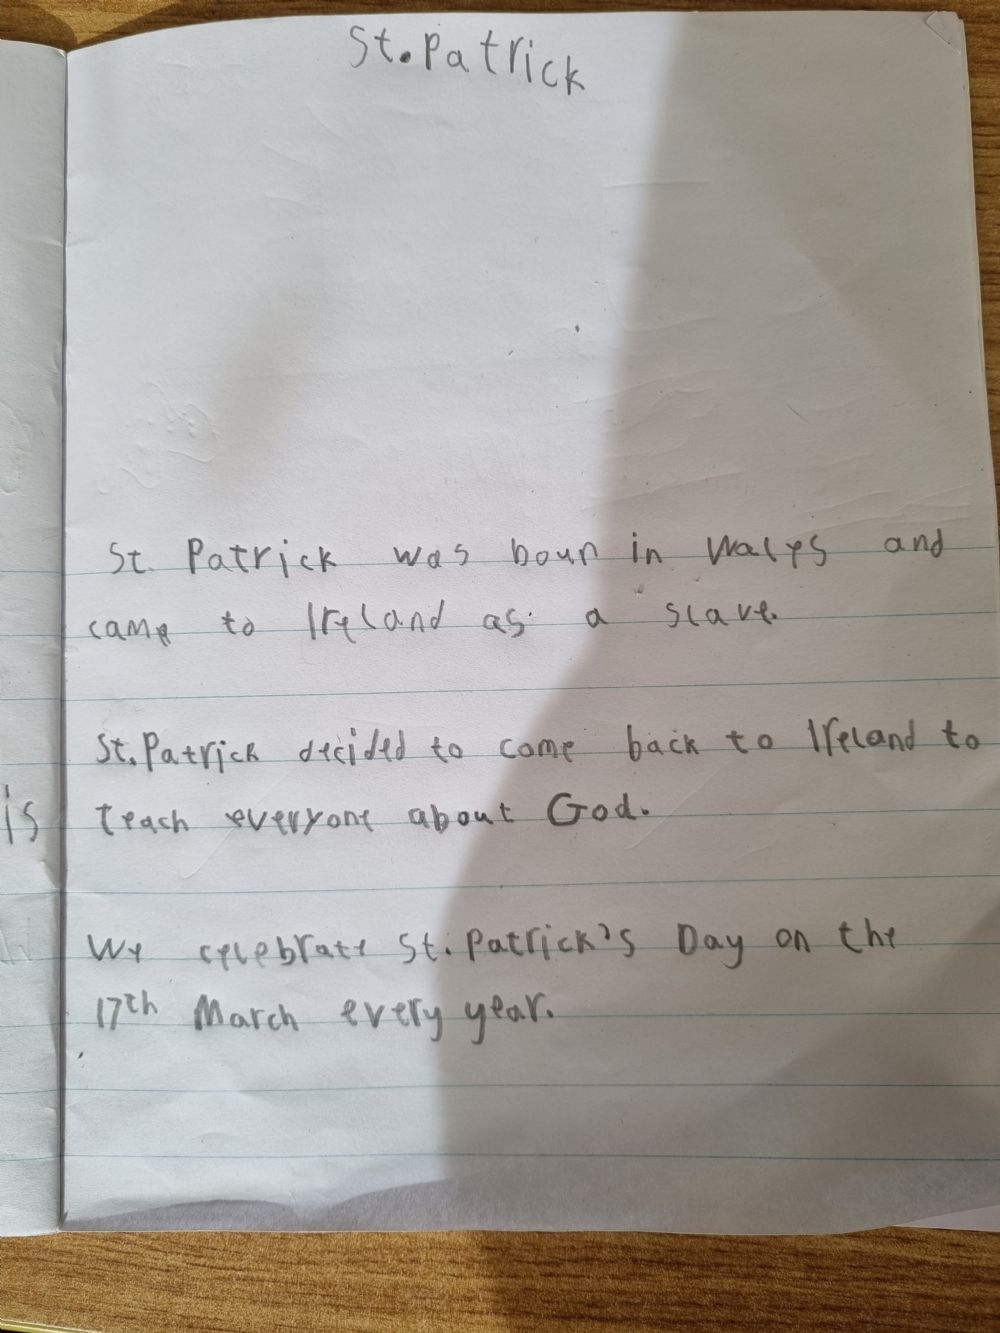 St. Patrick
St. Patrick was boun in Walys and
came to Ireland as a slave.
St. Patrick decided to come back to Ireland to
is
teach everyone about God.
We celebrate St. Patrick's Day on the
17th March every year.